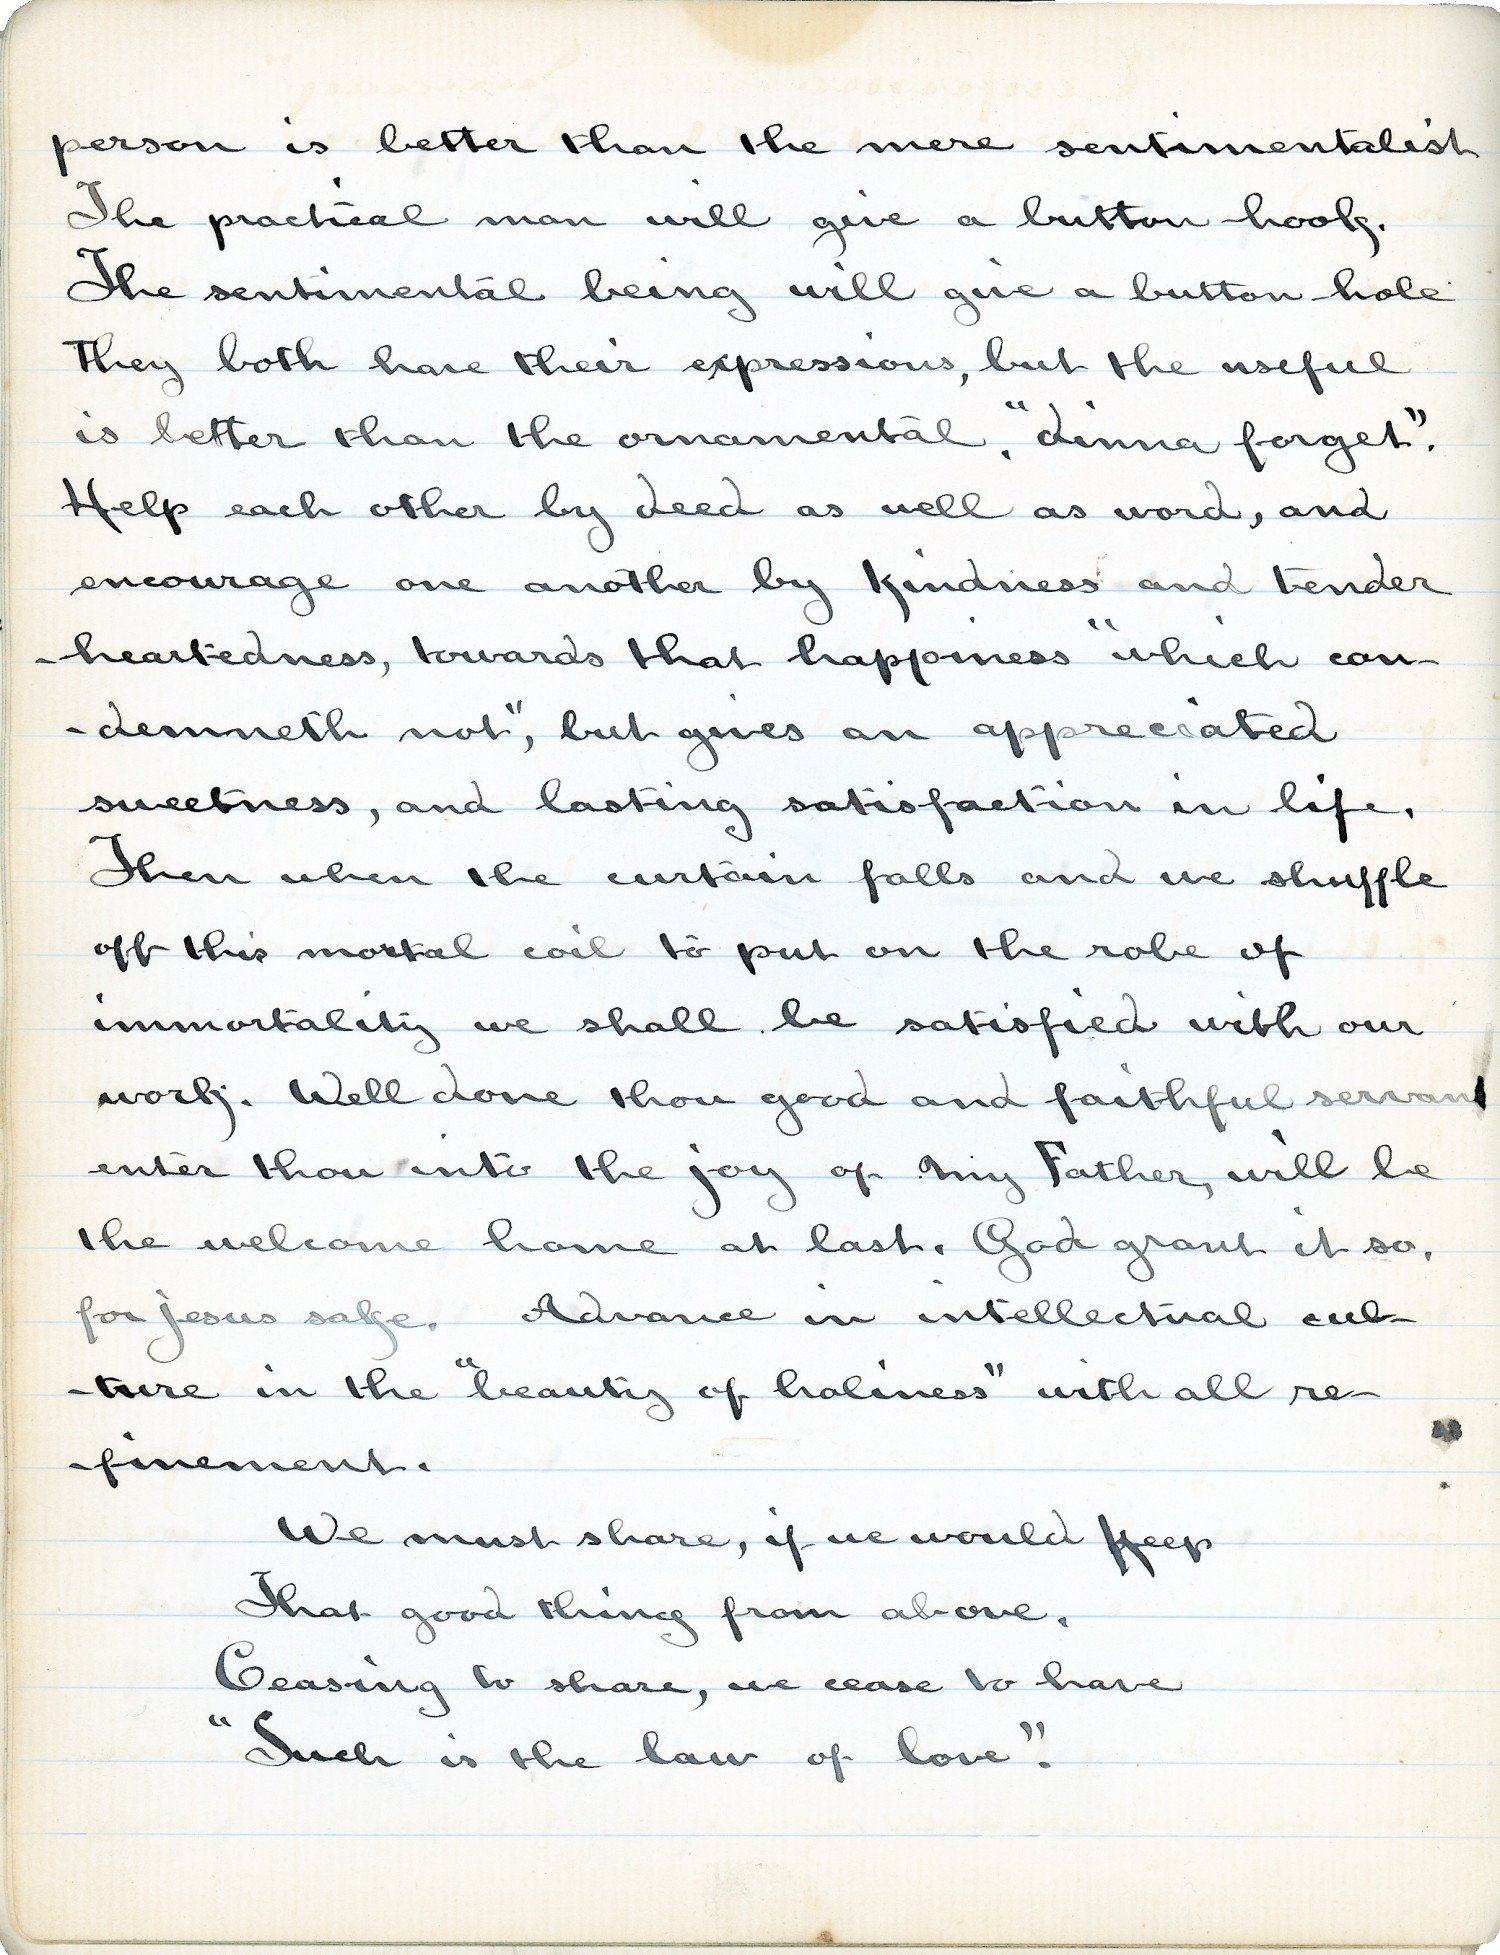 person is better than the mere sentimentalist
The practical man will give a button-hook.
The sentimental being will give a button-hole
They both have their expressions, but the useful
is better than the ornamental. "dinna forget".
Help each other by deed as well as word, and
encourage one another by kindness and tender
-heartedness, towards that happiness "which con-
-demneth not", but gives an appreciated
sweetness, and lasting satisfaction in life.
Then when the curtain falls and we shuffle
off this mortal coil to put on the robe of
immortality we shall be satisfied with our
work. Well done thou good and faithful servant
enter thou into the joy of my Father, will be
the welcome home at last. God grant it so.
for Jesus sake. Advance in intellectual cul-
-ture in the "beauty of holiness" with all re-
-finement.
We must share, if we would keep
That good thing from above.
Ceasing to share, we cease to have
"Such is the law of love".